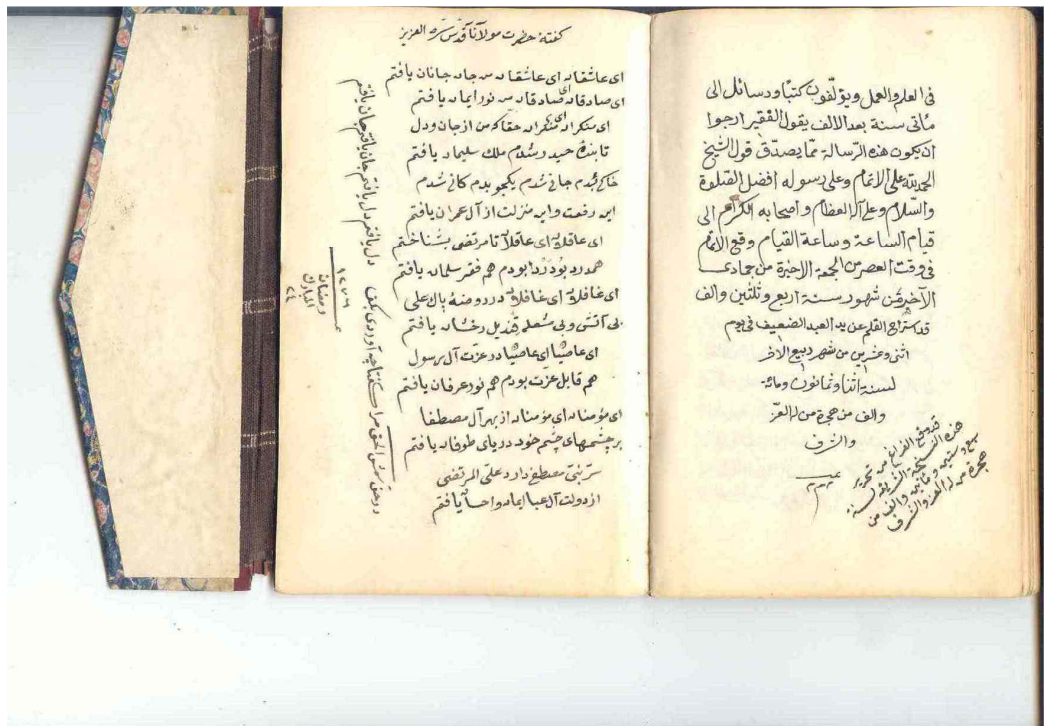 فى العلم والعمل ويؤلّفون كتبًا ورسائل الى
مأتى سنة بعد الالف يقول الفقير ارجوا
ان يكون هذه الرّسالة ممّا يصدّق قول الشيخ
الحمد لله على الاتمام وعلى رسوله افضل الصّلوة
والسّلام وعلى آله العظام واصحابه الكرام الى
قيام الساعة وساعة القيام وقع الاتمام
فى وقت العصر من الجمعة الاخيرة من جمادى
الآخر من شهور سنة اربع وثلثين والف
قد استراح القلم عن يد العبد الضعيف فى يوم
اثنى وعشرين من شهر ربيع الآخر
لسنة اثنا وثمانون ومائة
والف من هجرة من له العزّ
والشرف
قد وقع الفراغ من تحرير
هذه النسخة الشريفة لسنة
سبع وستين ومأتين والف من
هجرة من له العز والشرف
كفتۀ حضرت مولانا قدّس سرّه العزيز
اى عاشقان اى عاشقان من جان جانان يافتم
اى صادقان اى صادقان من نور ايمان يافتم
اى منكران اى منكران حقّا كه من از جان ودل
تا بندۀ حيدر شدم ملك سليمان يافتم
خاكى بدم جانى شدم يكجو بدم كانى شدم
اين رفعت واين منزلت از آل عمران يافتم
اى عاقلان اى عاقلان تا مرتضى بشناختم
همدرد بودردا بودم هم فقر سلمان يافتم
اى غافلان اى غافلان در روضۀ پاك على
بى آتش وبى شعله قنديل رخشان يافتم
اى عاصيان اى عاصيان در عزّت آل رسول
هم قابل عزّت بودم هم نور عرفان يافتم
اى مؤمنان اى مؤمنان از بهر آل مصطفا
بر چشمهاى چشم خود درياى طوفان يافتم
سرّ نبىّ مصطفى دارد علىّ المرتضى
از دولت آل عبا ايمان واحسان يافتم
در عشق شمس الحق مرا آوردى بكف
دل يافتم دل يافتم جان يافتم جان يافتم
رمضان
المبارك
٢٤